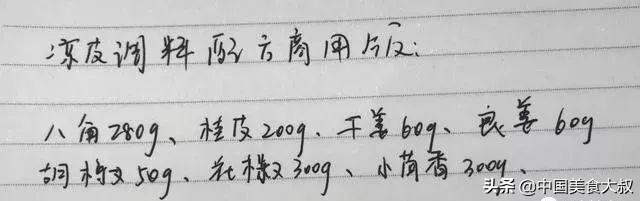 凉皮调料配方商用版:
八角280g、桂皮200g、干姜60g、良姜60g
胡椒50g、花椒300g、小茴香300g、
头条@中国美食大叔